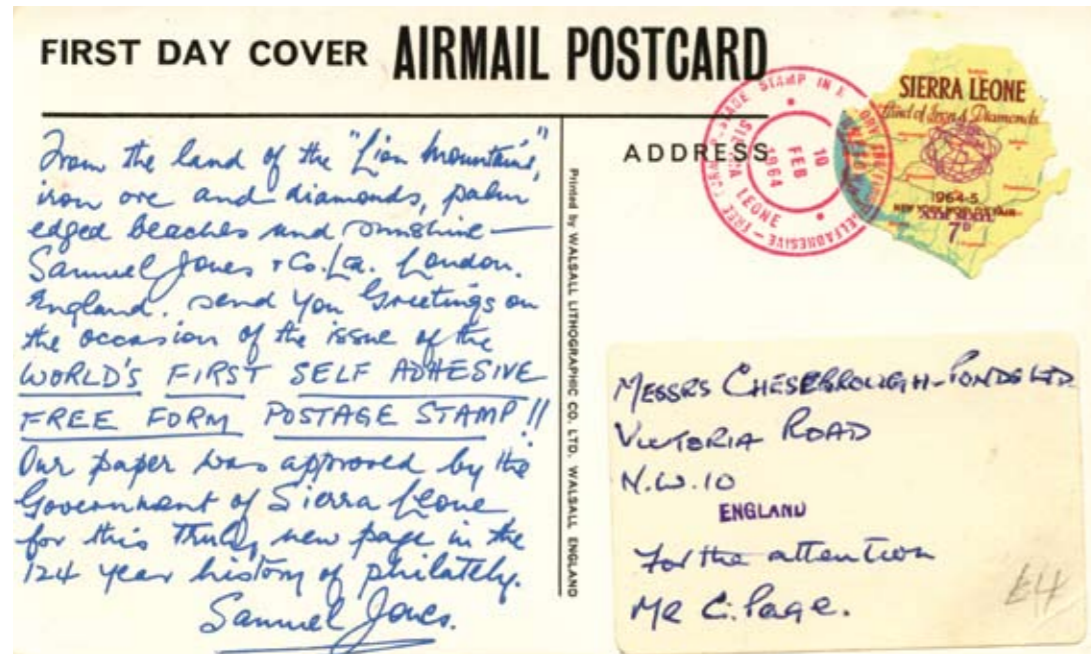 FIRST DAY COVER AIRMAIL POSTCARD
From the land of the "Lion Mountains",
iron ore and diamonds, palm
edged beaches and sunshine —
Samuel Jones & Co. Ltd. London.
England. send you Greetings on
the occasion of the issue of the
WORLD'S FIRST SELF ADHESIVE
FREE FORM POSTAGE STAMP!!
Our paper was approved by the
Government of Sierra Leone
for this truly new page in the
124 year history of philately.
Samuel Jones.
Printed by WALSALL LITHOGRAPHIC CO. LTD. WALSALL ENGLAND
ADDRESS
STAMP IN
SELFADHESIVE – FREE FORM
10
FEB
1964
LEONE
SIERRA LEONE
Land of Iron & Diamonds
1964-5
NEW YORK WORLD'S FAIR
7D
MESSRS CHESEBROUGH-PONDS LTD
VICTORIA ROAD
N.W.10
ENGLAND
For the attention
MR C. Page.
£4